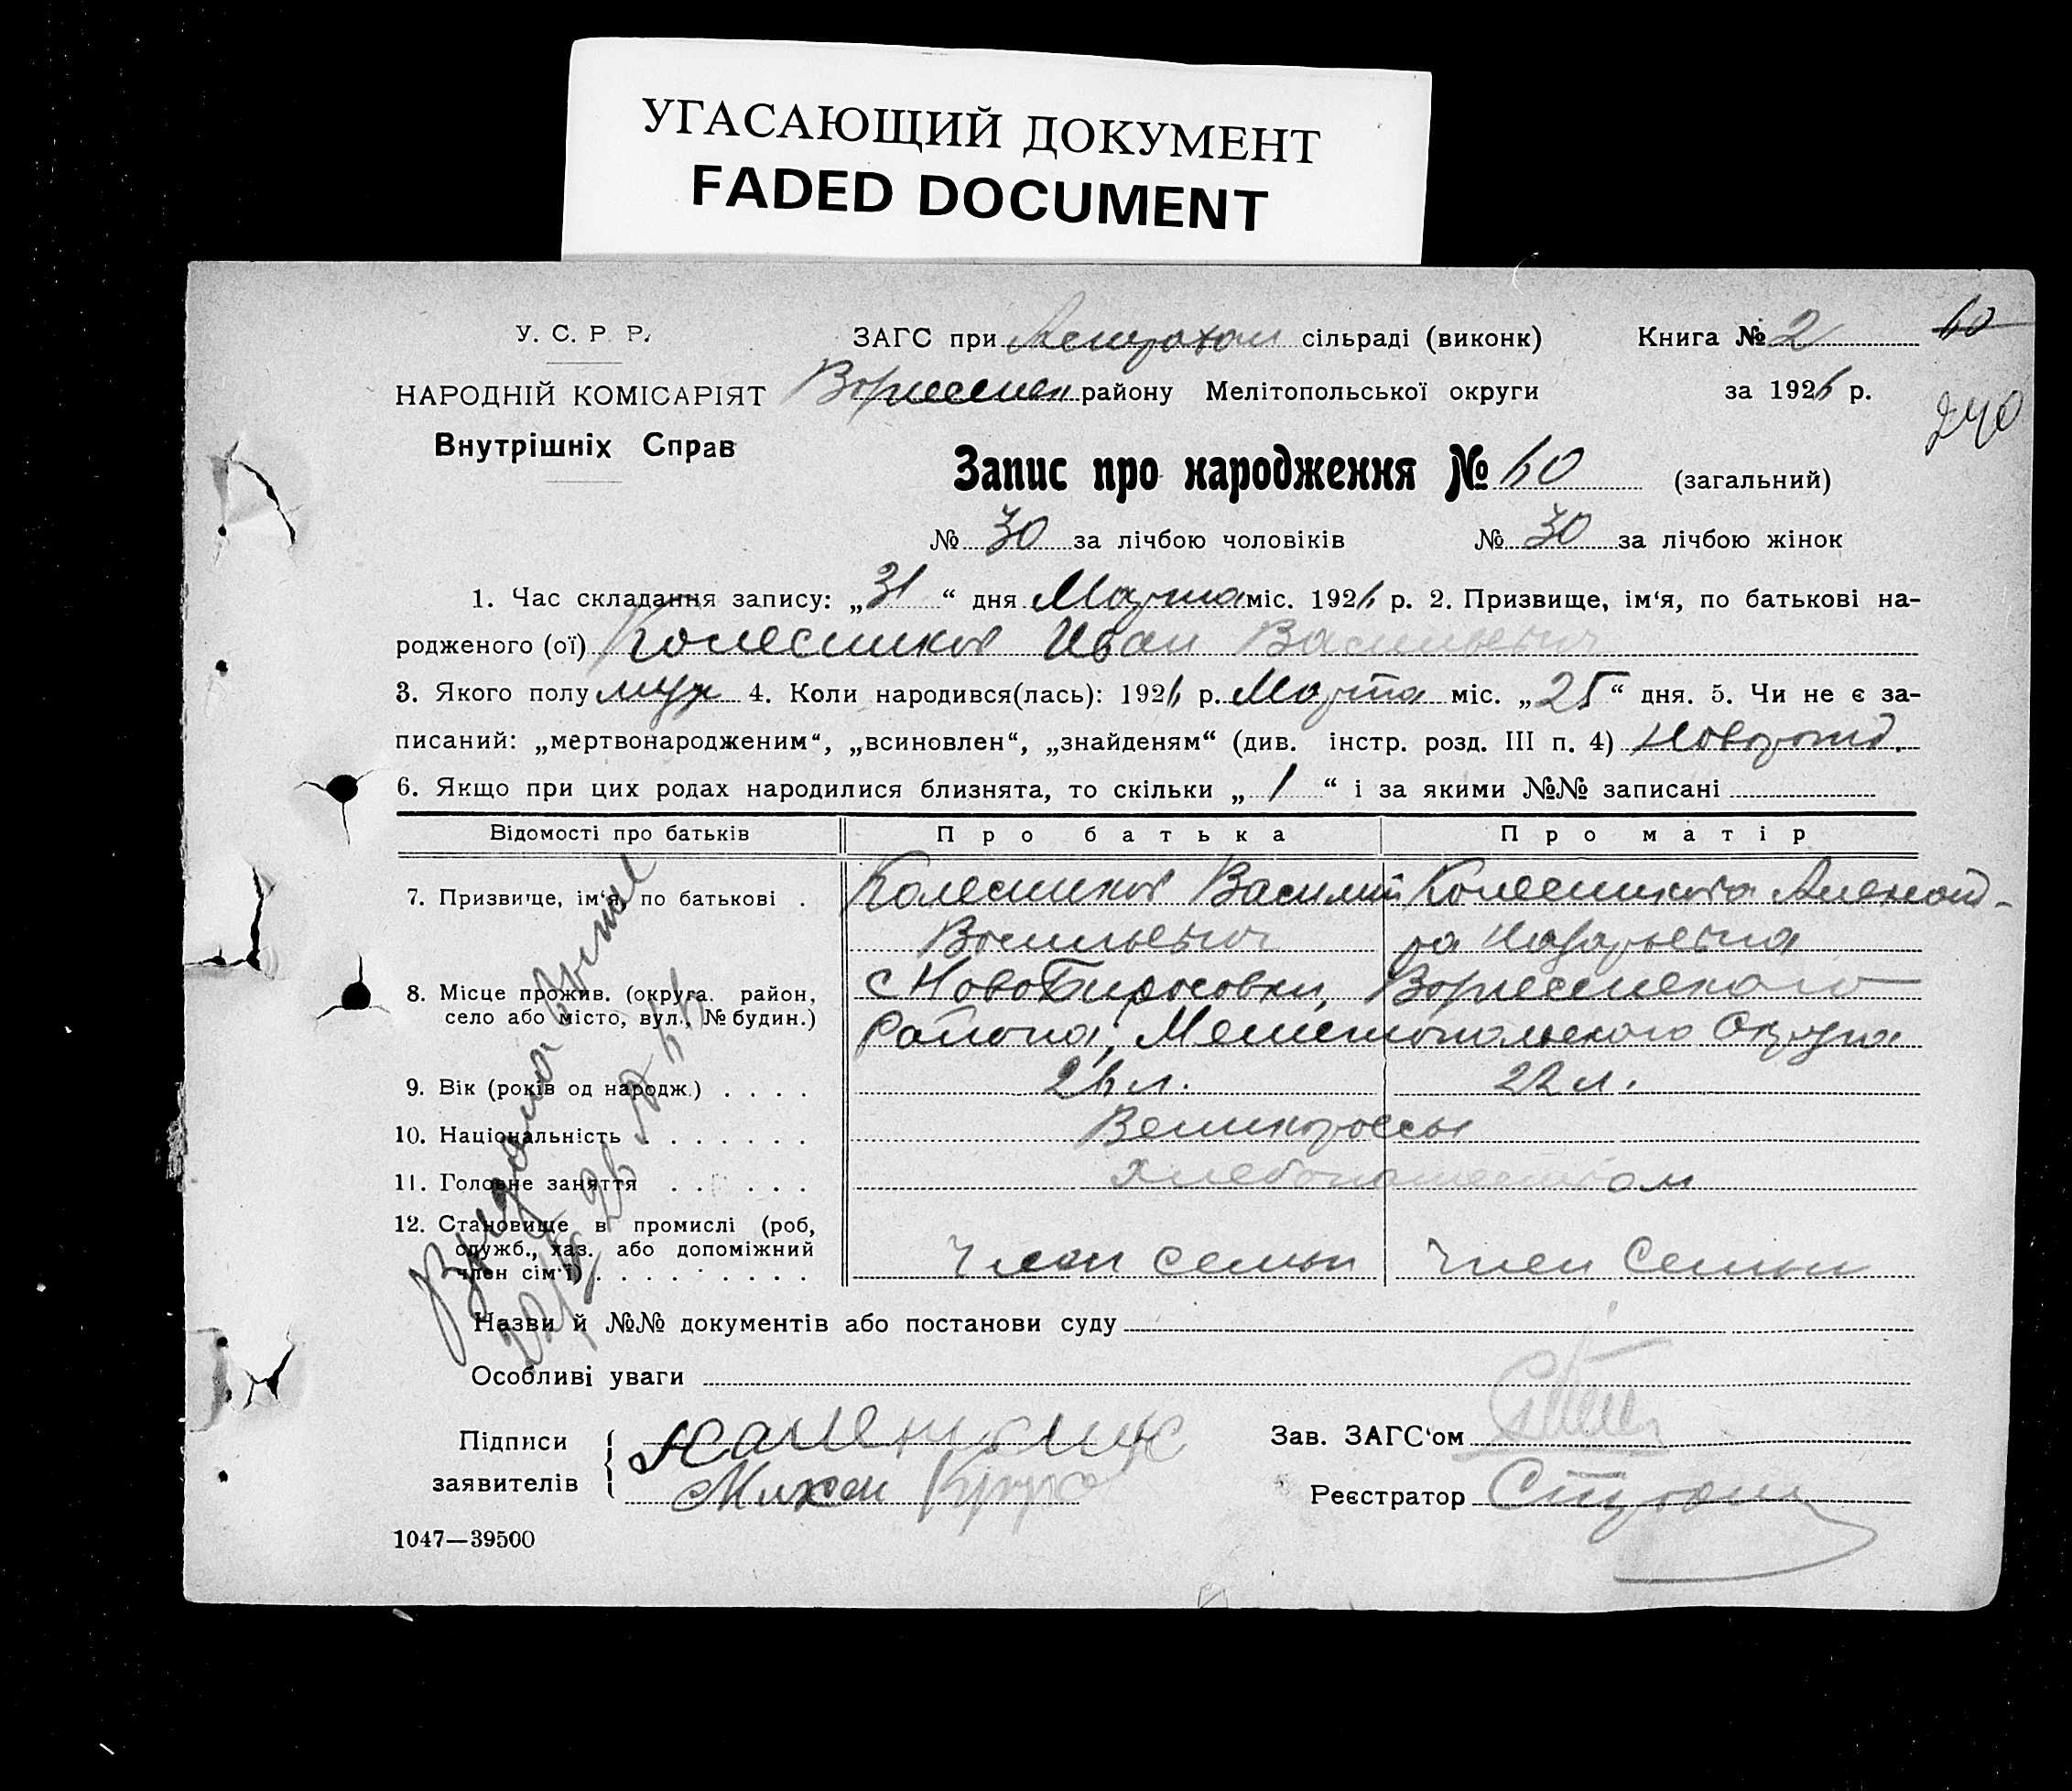 УГАСАЮЩИЙ ДОКУМЕНТ
FADED DOCUMENT
У. С. Р. Р.
НАРОДНІЙ КОМІСАРІЯТ
Внутрішніх Справ
ЗАГС при Астрахан сільраді (виконк) Книга № 2 60
району Мелітопольської округи за 1926 р.
240
Запис про народження № 60 (загальний)
№ 30 за лічбою чоловіків № 30 за лічбою жінок
1. Час складання запису: „31“ дня Марта міс. 1926 р. 2. Призвище, ім‘я, по батькові на-
родженого (ої) Колесников Иван Васильевич
3. Якого полу муж 4. Коли народився(лась): 1926 р. Марта міс. „25“ дня. 5. Чи не є за-
писаний: „мертвонародженим“, „всиновлен“, „знайденям“ (див. інстр. розд. III п. 4) Новорожд.
6. Якщо при цих родах народилися близнята, то скільки „ 1 “ і за якими №№ записані
Відомості про батьків Про батька Про матір
7. Призвище, ім‘я, по батькові . Колесников Василий Колесникова Александ-
Васильевич ра Назарьевна
8. Місце прожив. (округа. район, с
село або місто, вул., № будин.) Района, Мелитопольского Округа
9. Вік (років од народж.) . . . . 26 л. 22 л.
10. Національність . . . . . . . Великороссы
11. Головне заняття . . . . . . Хлебопашеством
12. Становище в промислі (роб,
служб., хаз. або допоміжний
член сім‘ї) . . . . . . . . . Член семьи Член Семьи
Назви й №№ документів або постанови суду
Особливі уваги
Підписи
заявителів Михаи
Зав. ЗАГС‘ом
Реєстратор
1047—39500